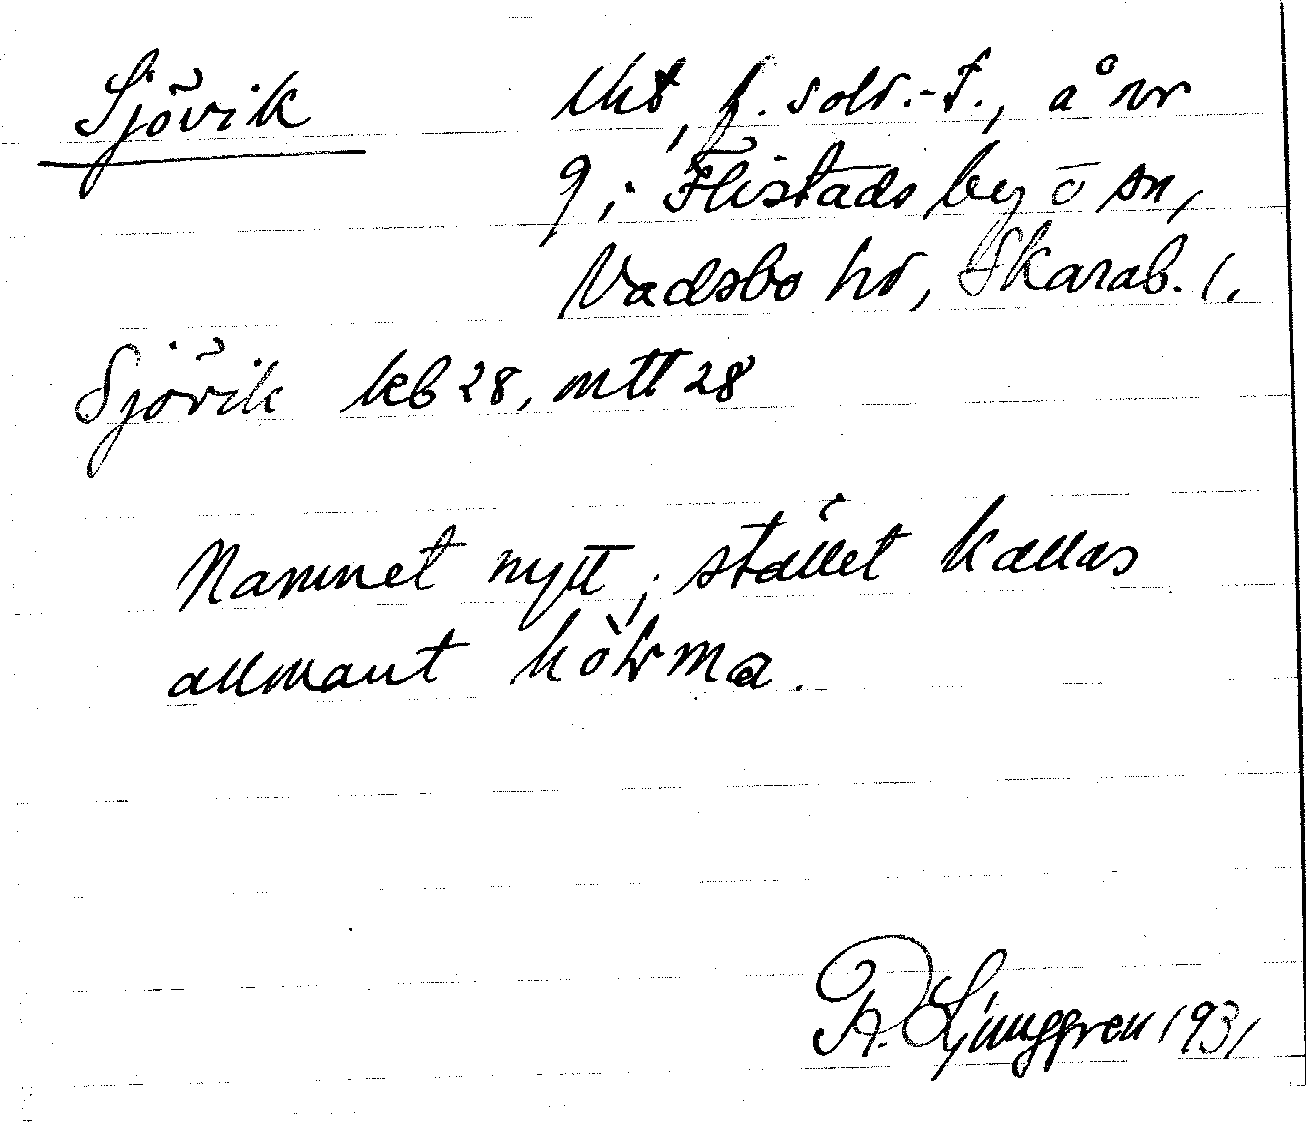 Sjövik
lht, f. sold.-t., å nr
9 i Flistads by o sn,
Vadsbo hd, Skarab. l.
Sjövik kb 28, mtl 28
Namnet nytt; stället kallas
allmänt
R. Ljunggren 1931